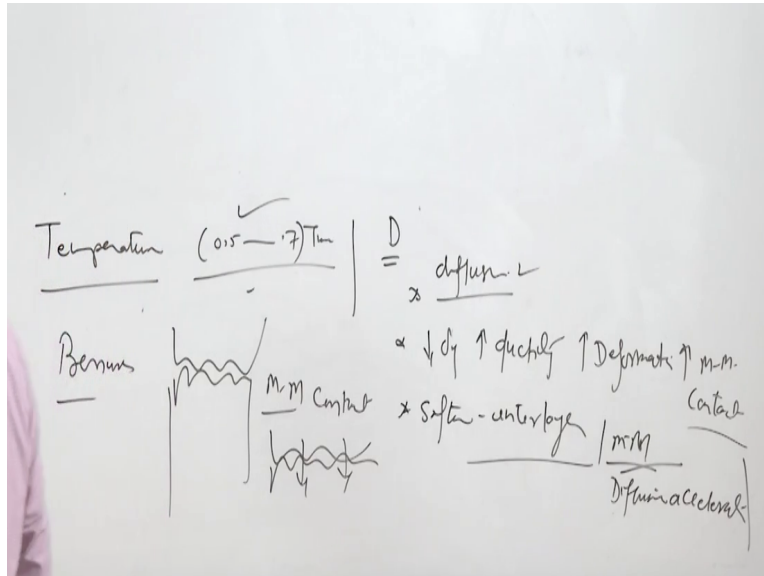 Temperature (0.5 — .7) Tm | D
* diffusion
Pressure
M-M Contact
* ↓ σy ↑ ductility ↑ Deformatn ↑ m-m. Contact
* Soften - interlayer / m-M
Diffusion accelerat